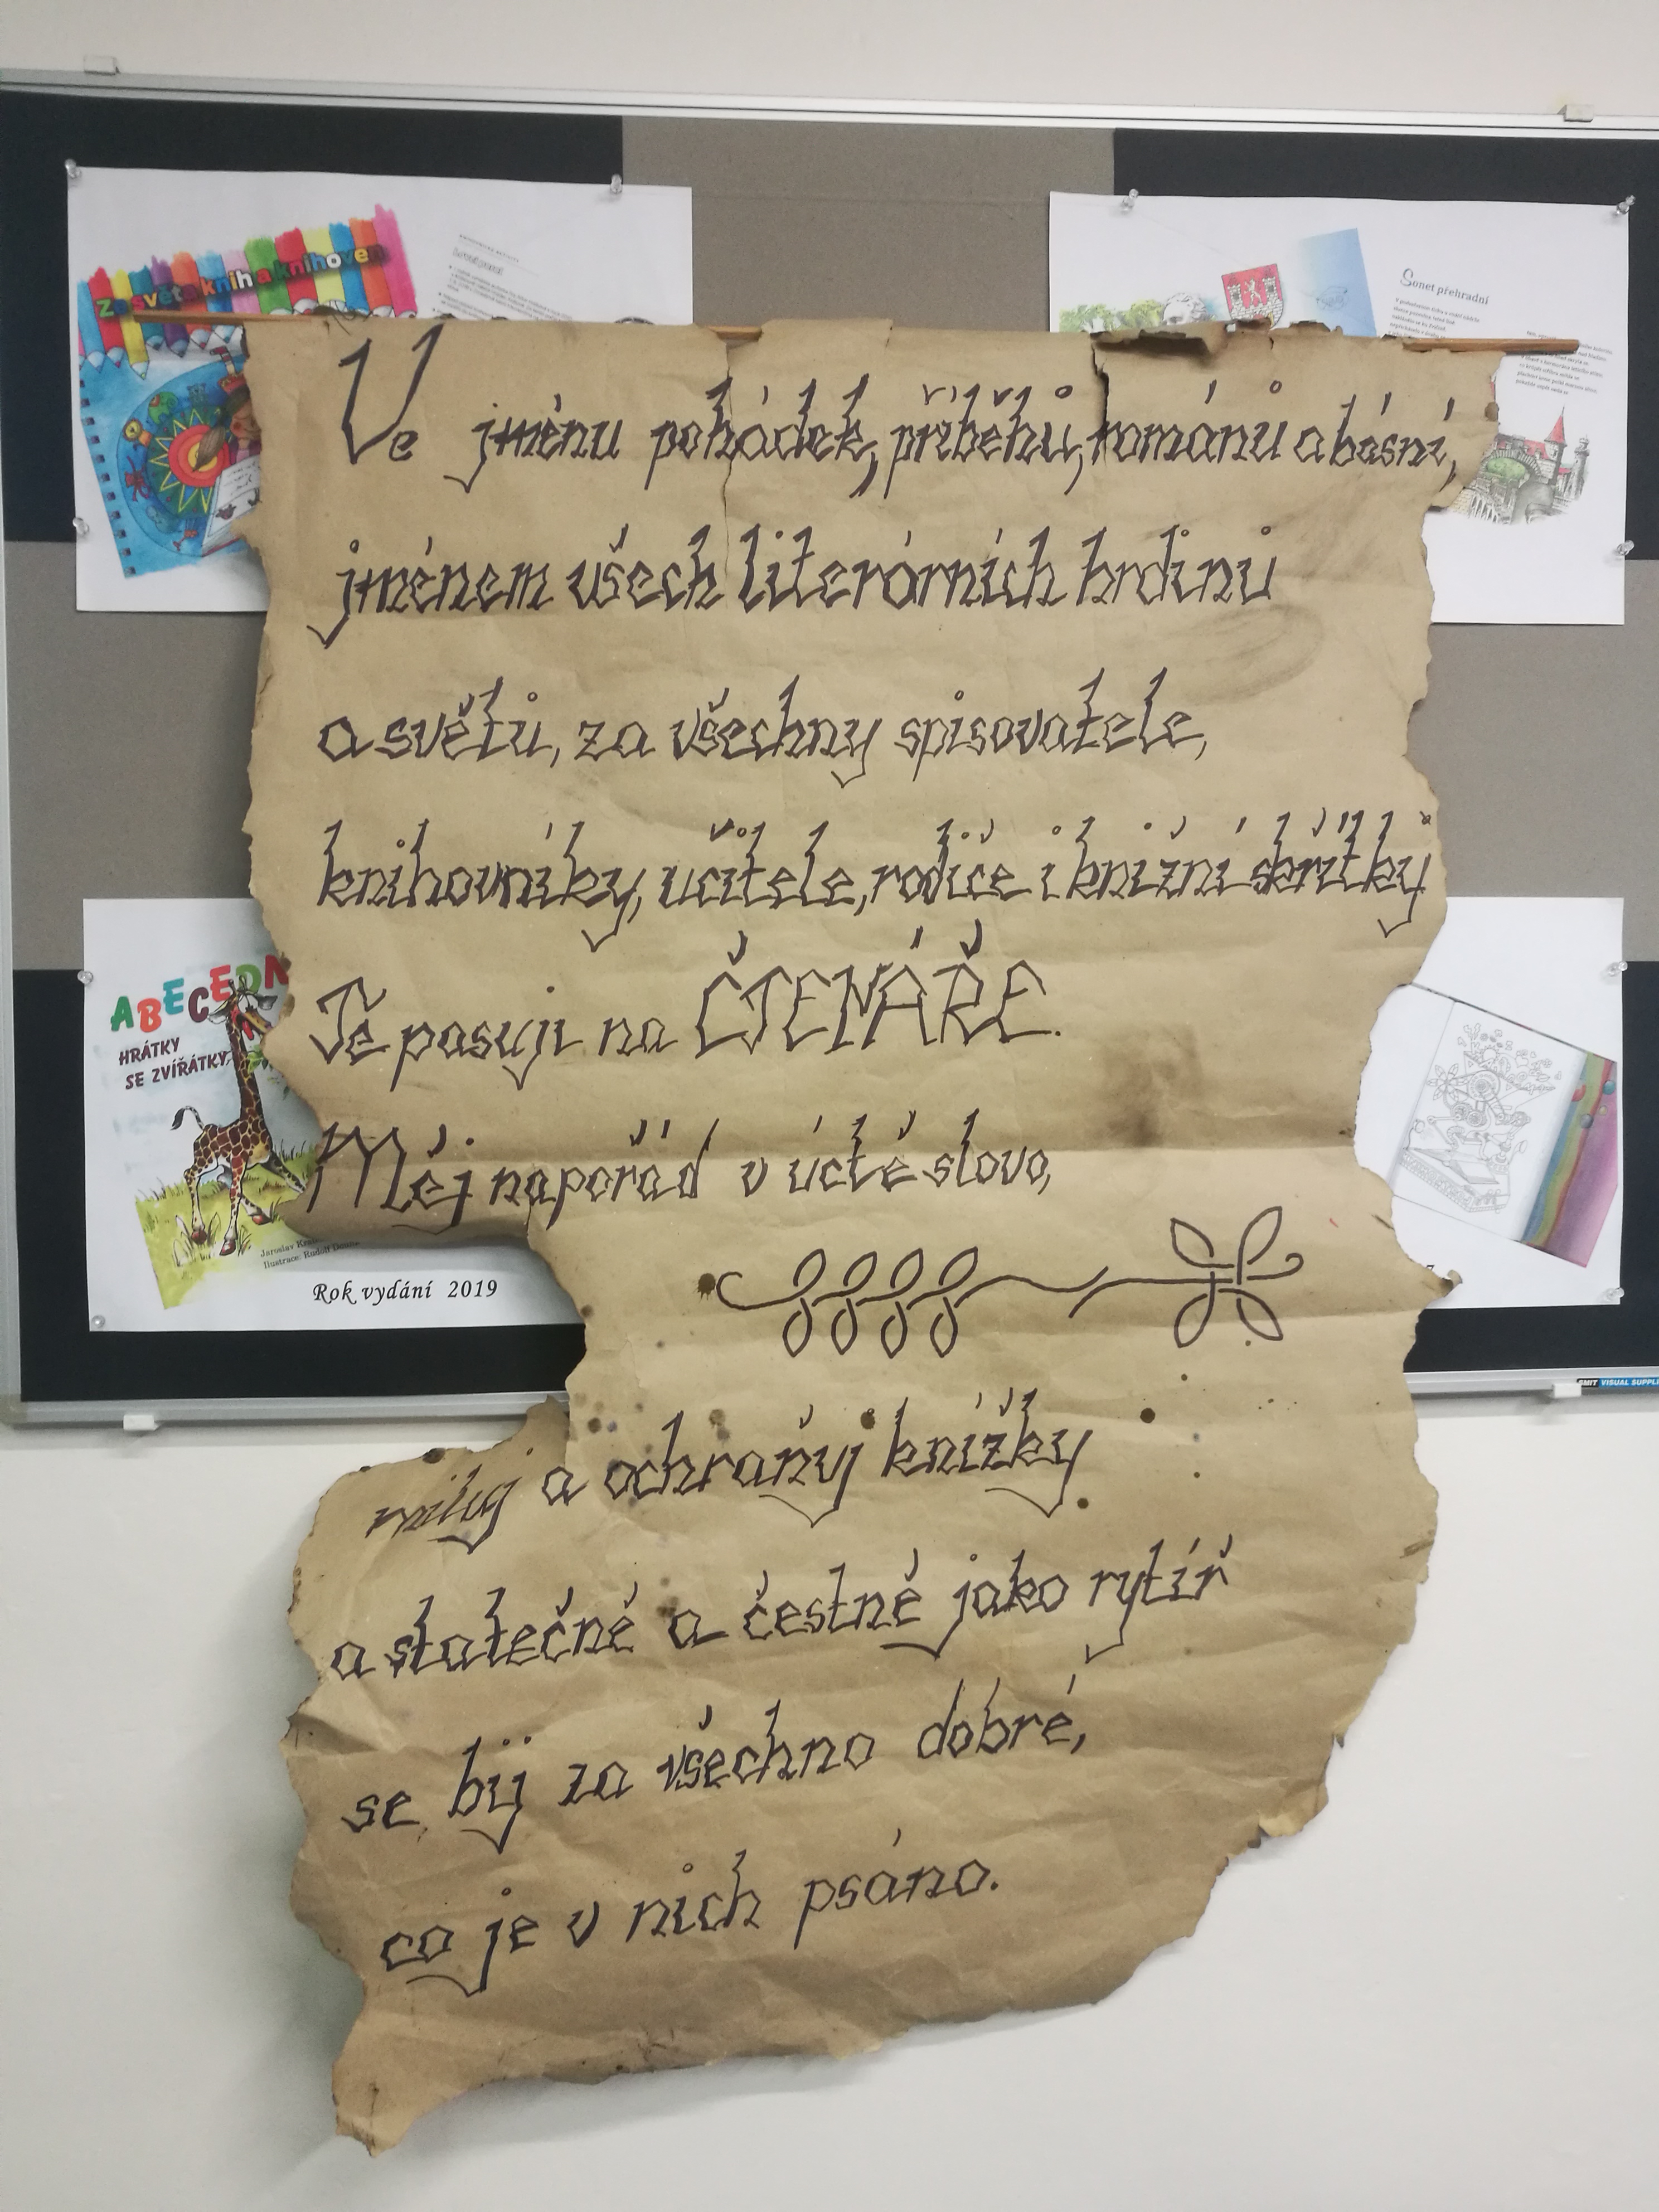 Ze světa knih a knihoven
Sonet přehradní
Ve jménu pohádek, příběhů, románů a básní,
jménem všech literárních hrdinů
a světů, za všechny spisovatele,
knihovníky, učitele, rodiče i knižní skřítky
Tě pasuji na ČTENÁŘE.
Měj napořád v úctě slovo,
miluj a ochraňuj knížky
a statečně a čestně jako rytíř
se bij za všechno dobré,
co je v nich psáno.
HRÁTKY
SE ZVÍŘÁTKY
Jaroslav
Ilustrace: Rudolf
Rok vydání 2019
SMIT VISUAL